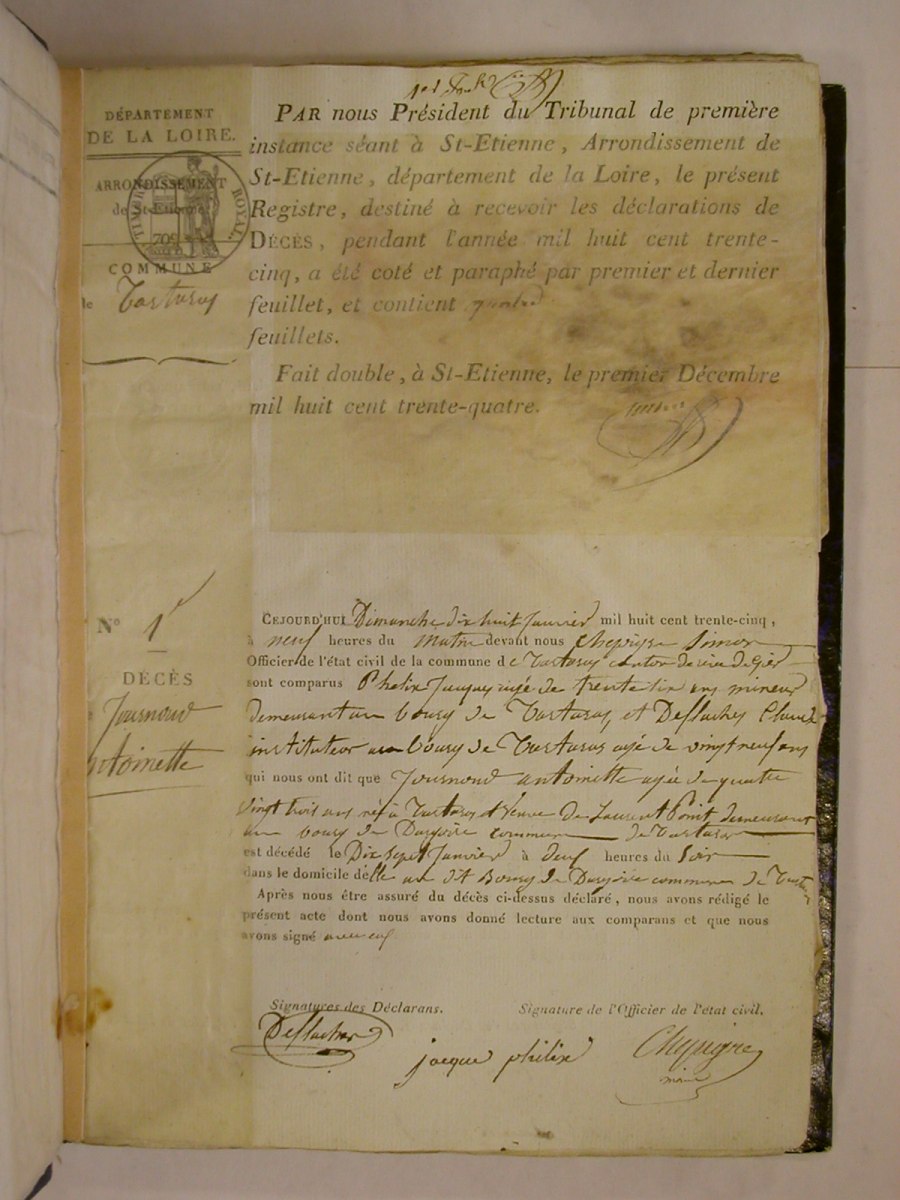 1er f.t
DÉPARTEMENT
DE LA LOIRE.
ARRONDISSEMENT
de St-Etienne
TIMBRE ROYAL
70c
COMMUNE
de Tartaras
PAR nous Président du Tribunal de première
instance séant à St-Etienne, Arrondissement de
St-Etienne, département de la Loire, le présent
Registre, destiné à recevoir les déclarations de
DÉCÈS, pendant l'année mil huit cent trente-
cinq, a été coté et paraphé par premier et dernier
feuillet, et contient
feuillets.
Fait double, à St-Etienne, le premier Décembre
mil huit cent trente-quatre.
N° 1er
DÉCÈS
Journoud
antoinette
CEJOURD'HUI Dimanche dix huit Janvier mil huit cent trente-cinq,
à neuf heures du matin devant nous Chepigre Simon
Officier de l'état civil de la commune de Tartaras canton de rive de gier
sont comparus Phelix Jacques agé de trente six ans mineur
demeurant au bourg de Tartaras, et Desflaches Claude
instituteur au bourg de Tartaras agé de vingt neuf ans
qui nous ont dit que Journoud antoinette agée de quatre
vingt trois ans né à Tartaras et veuve de Laurent Point demeurant
au bourg de Dargoire commune de Tartaras
est décédé le Dix sept Janvier à deux heures du Soir
dans le domicile délle au dt Bourg de Dargoire commune de Tartaras
Après nous être assuré du décès ci-dessus déclaré, nous avons rédigé le
présent acte dont nous avons donné lecture aux comparans et que nous
avons signé avec eux
Signatures des Déclarans. Signature de l'Officier de l'état civil.
Desflaches
jacque philix
Chepigre
maire